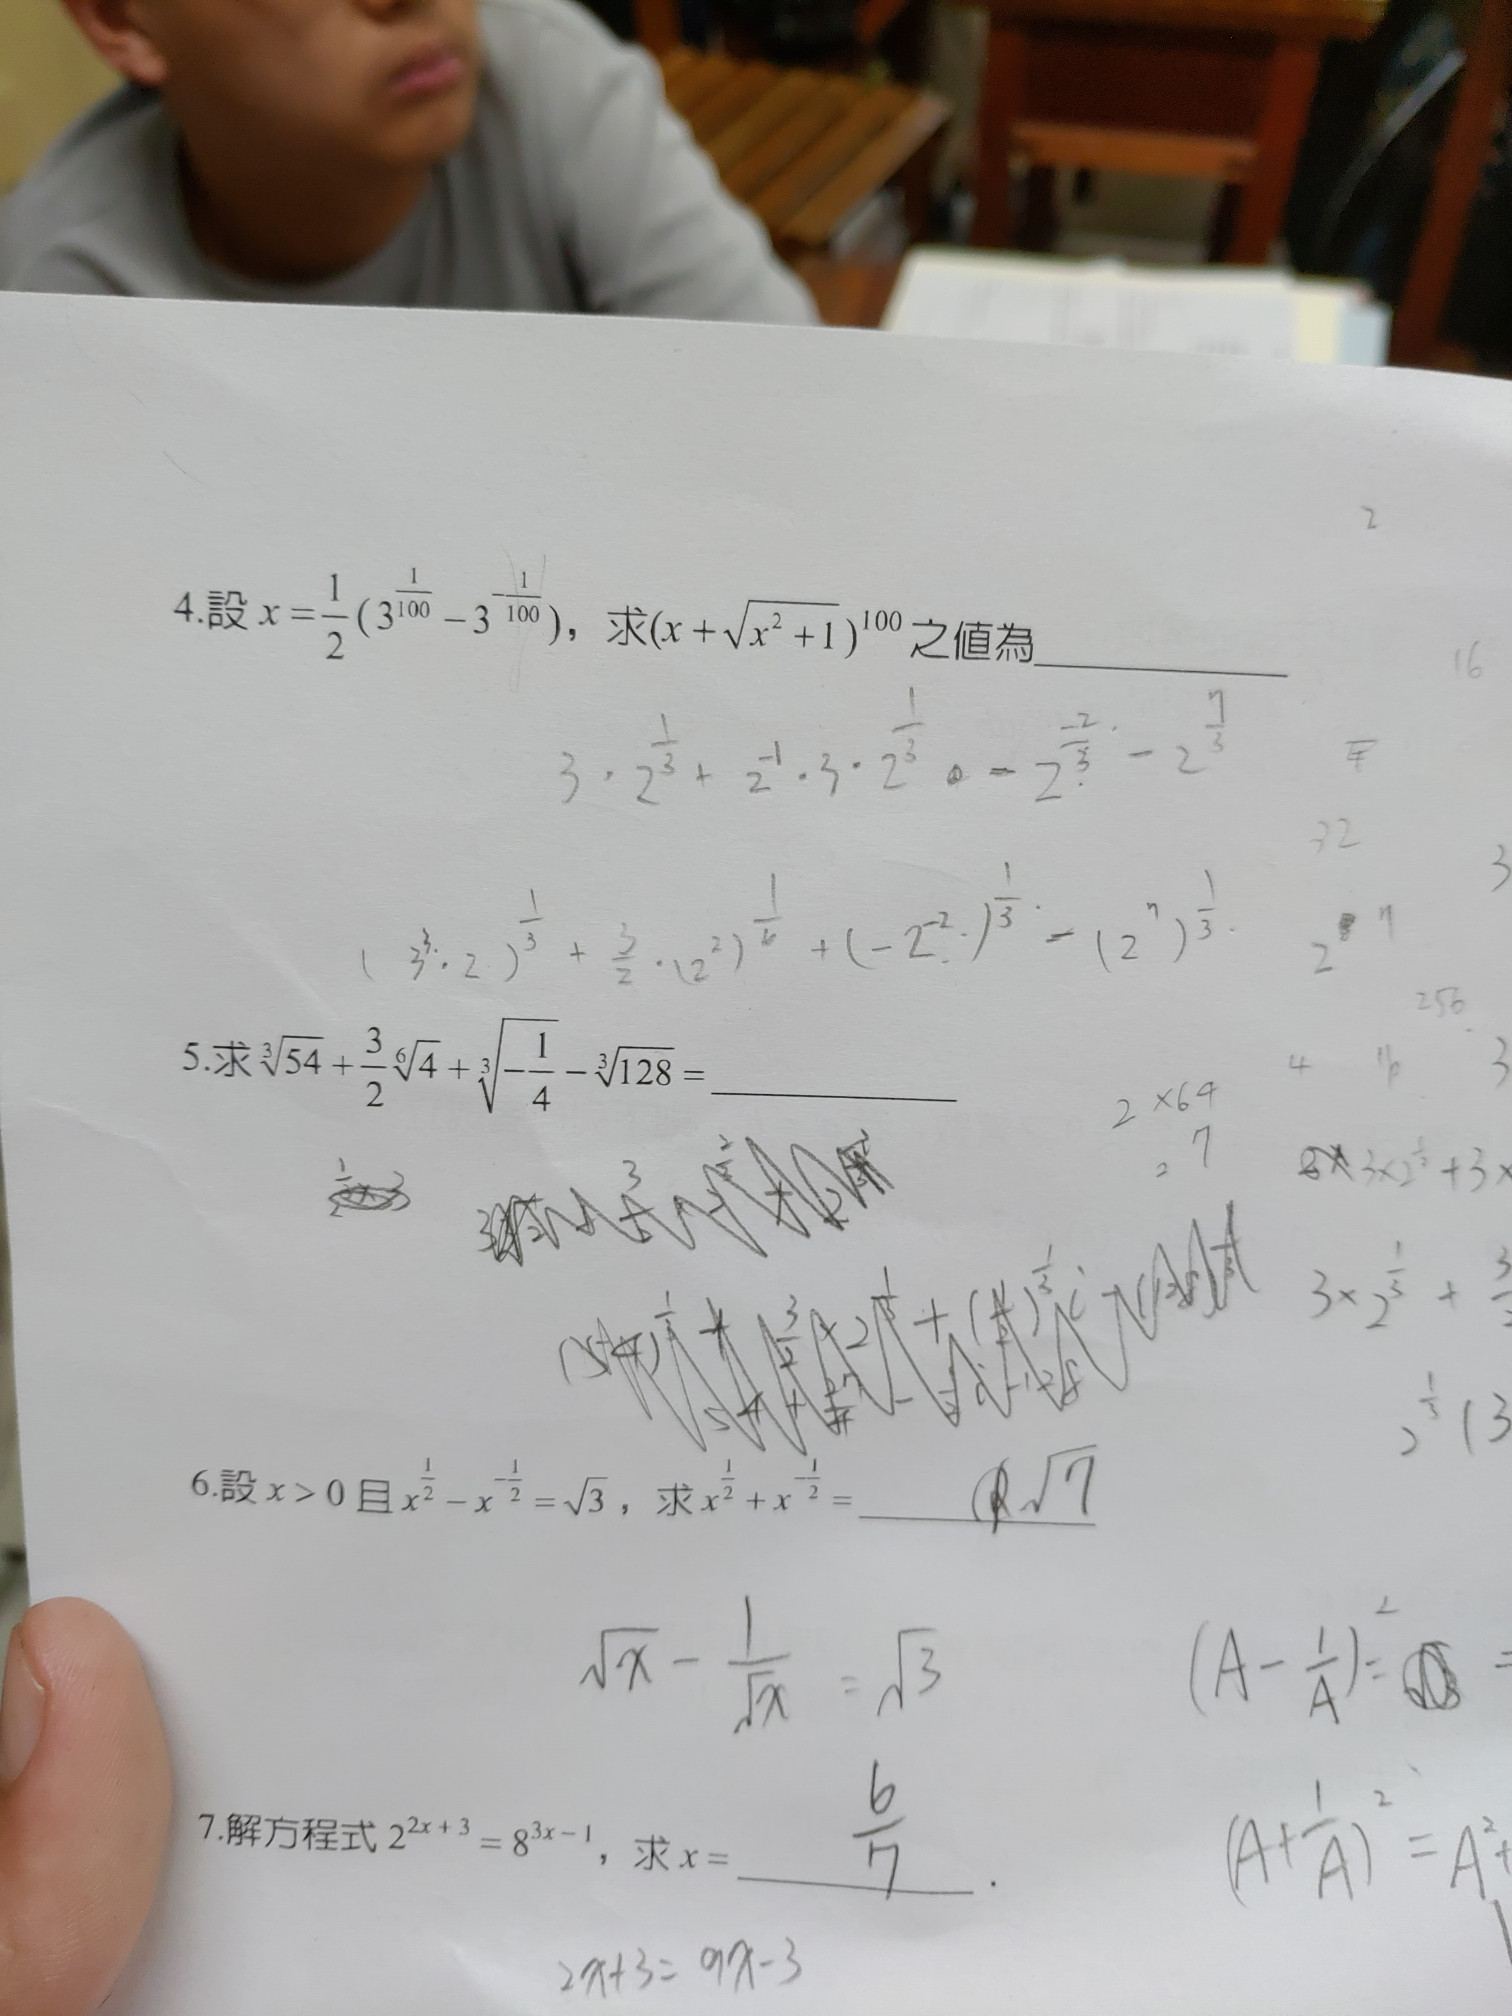 2
4.設 x = 1/2 (3^(1/100) − 3^(−1/100))，求(x + √(x² + 1))^100 之值為
16
3 · 2^(1/3) + 2^(-1) · 3 · 2^(1/3) - 2^(-2/3) - 2^(7/3)
32
3
(3³ · 2)^(1/3) + 3/2 · (2²)^(1/6) + (-2^(-2))^(1/3) - (2^7)^(1/3)
2 7
256
5.求 ³√54 + 3/2 ⁶√4 + ³√(−1/4) − ³√128 =
4 16 3
2 × 64
= 7
3×2^(1/3) + 3×
3 × 2^(1/3) + 3/2
2^(1/3) (3
6.設 x > 0 且 x^(1/2) − x^(−1/2) = √3，求 x^(1/2) + x^(−1/2) = √7
√x - 1/√x = √3
(A - 1/A)² = =
7.解方程式 2^(2x+3) = 8^(3x−1)，求 x = 6/7 .
(A + 1/A)² = A² +
2x+3 = 9x-3